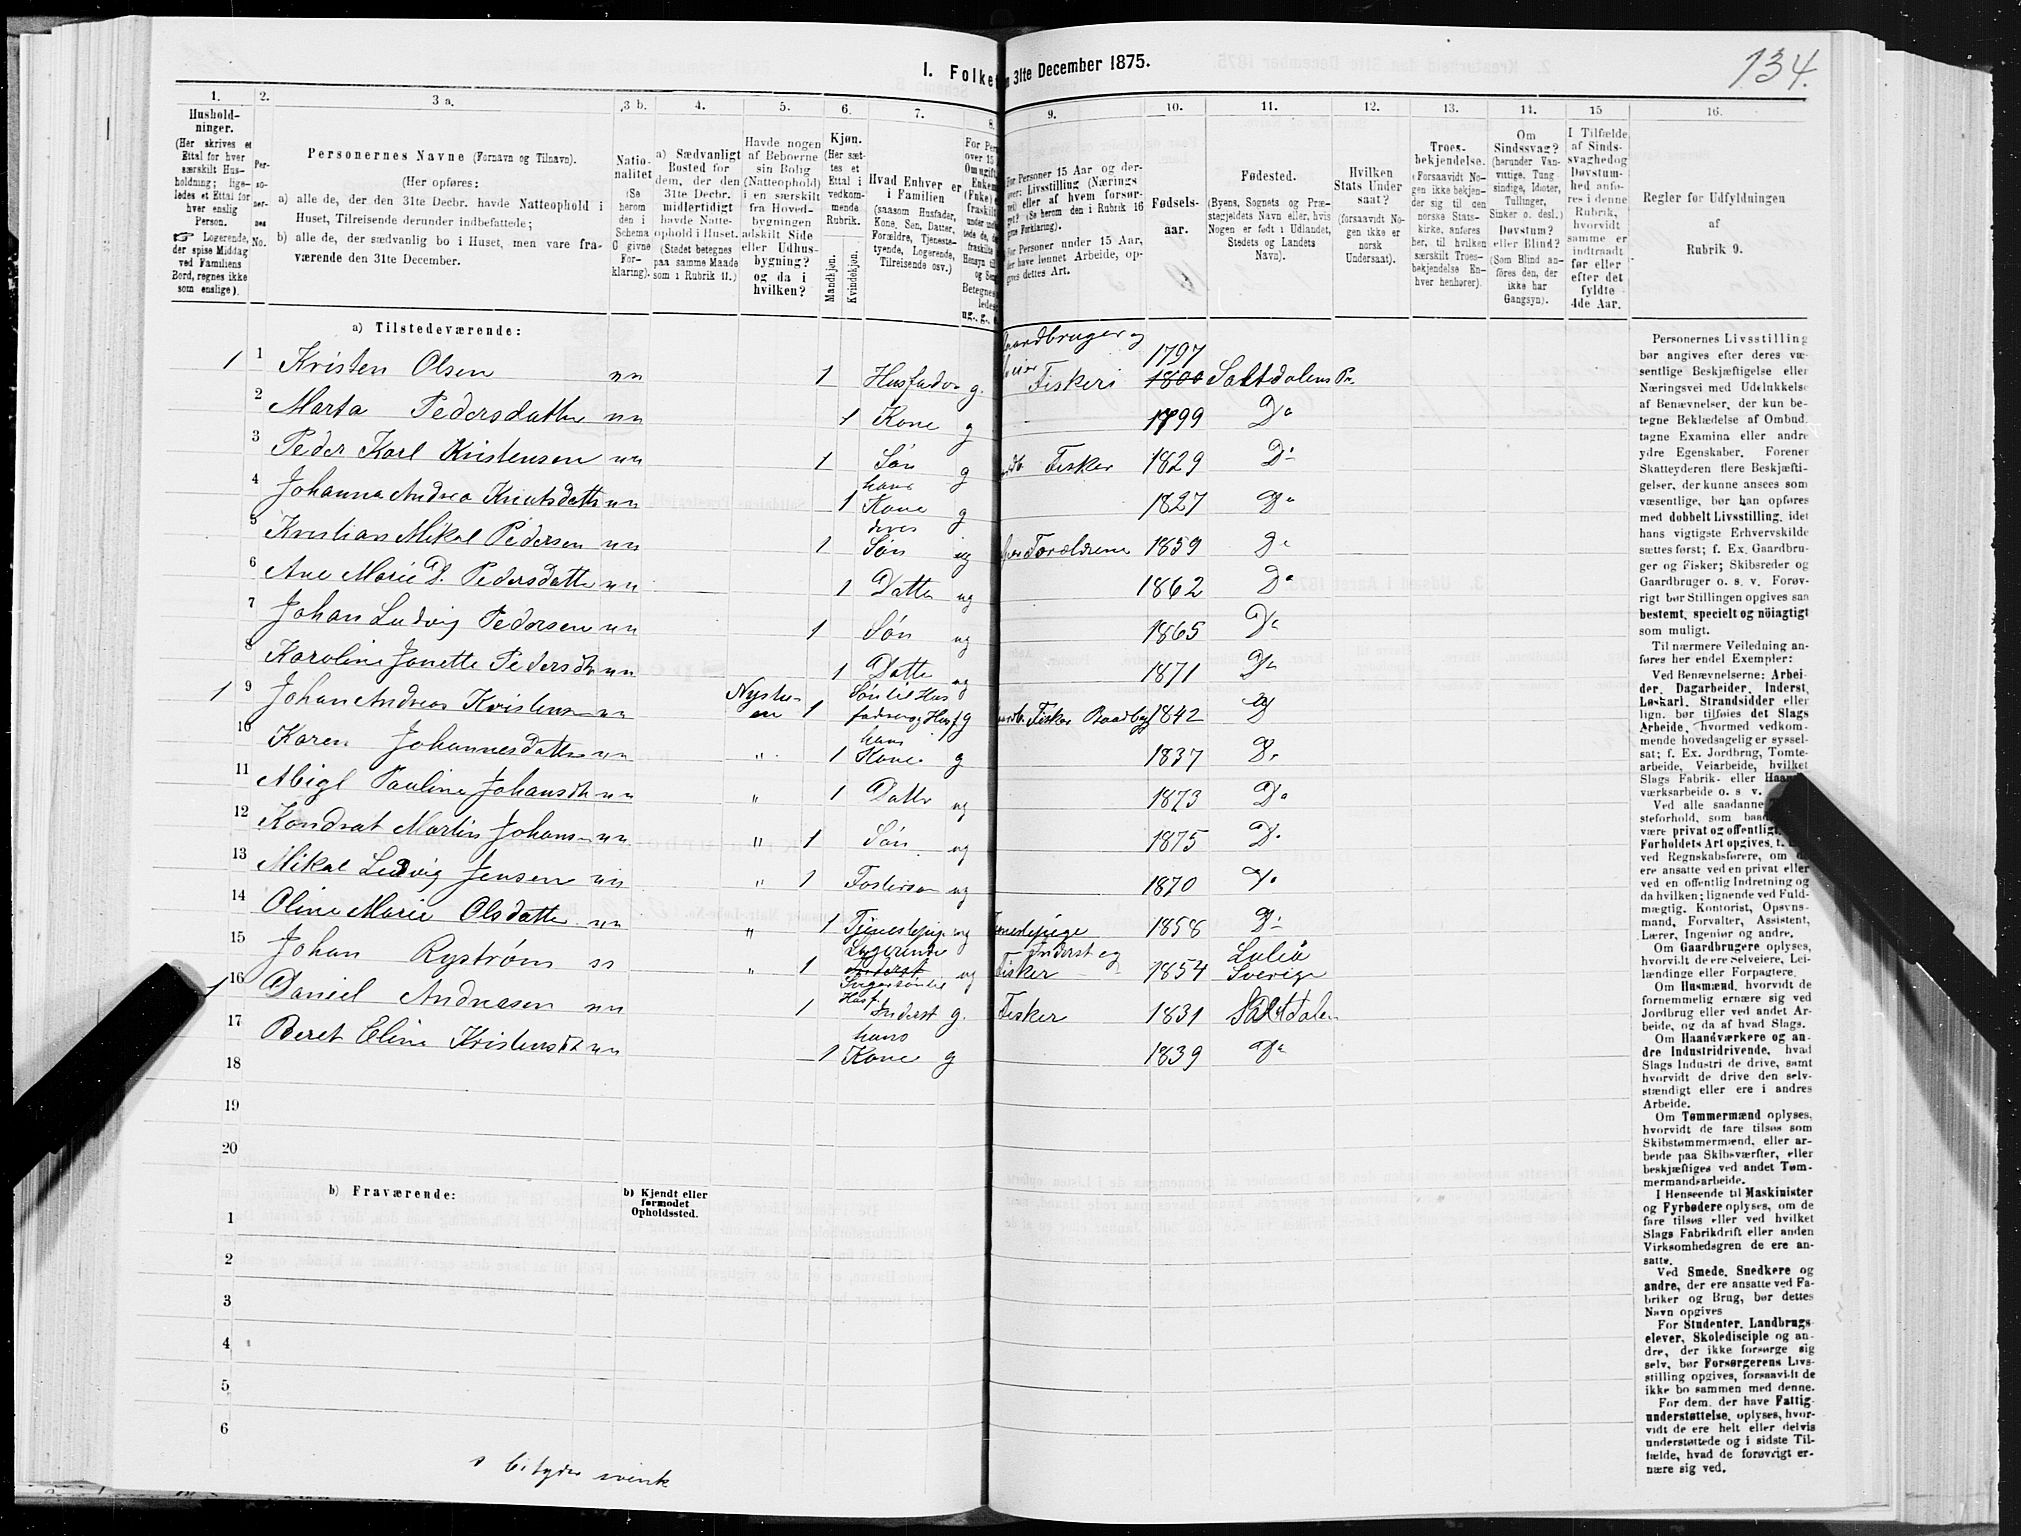 134.
I. Folket
n 31te December 1875.
1. 2. 3 a. 3 b. 4. 5. 6. 7. 8. 9. 10. 11. 12. 13. 14. 15 16.
Husholdninger.
(Her skrives et Ettal for hver særskilt Husholdning; ligeledes et Ettal for hver enslig Person.
☞ Logerende, der spise Middag ved Familiens Bord, regnes ikke som enslige).
Personernes No.
Personernes Navne (Fornavn og Tilnavn).
(Her opføres:
a) alle de, der den 31te Decbr. havde Natteophold i Huset, Tilreisende derunder indbefattede;
b) alle de, der sædvanlig bo i Huset, men vare fraværende den 31te December.
Nationalitet (Se herom den i Schema C givne Forklaring).
a) Sædvanligt Bosted for dem, der den 31te Decbr. midlertidigt havde Natteophold i Huset.
(Stedet betegnes paa samme Maade som i Rubrik 11.)
Havde nogen af Beboerne sin Bolig (Natteophold) i en særskilt fra Hovedbygningen adskilt Side eller Udhusbygning? og da i hvilken?
Kjøn. (Her sættes et Ettal i vedkommende Rubrik.
Mandkjøn. Kvindekjøn.
Hvad Enhver er i Familien
(saasom Husfader, Kone, Søn, Datter, Forældre, Tjenestetyende, Logerende, Tilreisende osv.)
For Personer 15 Aar og derover: Livsstilling (Næringsvei) eller af hvem forsørget? (Se herom den i Rubrik 16 givne Forklaring).
For Personer under 15 Aar, der have lønnet Arbeide, opgives dettes Art.
Fødselsaar.
Fødested.
(Byens, Sognets og Præstegjeldets Navn eller, hvis Nogen er født i Udlandet, Stedets og Landets Navn).
Hvilken Stats Undersaat?
(forsaavidt Nogen ikke er norsk Undersaat).
Troesbekjendelse.
(Forsaavidt Nogen ikke bekjender sig til den norske Statskirke, anføres her, til hvilken særskilt Troesbekjendelse Enhver henhører).
Om Sindssvag? (herunder Vanvittige, Tungsindige, Idioter, Tullinger, Sinker o. desl.)
Døvstum? eller Blind?
(Som Blind anføres den, der ikke har Gangsyn).
I Tilfælde af Sindssvaghed og Døvstumhed anføres i denne Rubrik, hvorvidt samme er indtraadt før eller efter det fyldte 4de Aar.
Regler for Udfyldningen af Rubrik 9.
a) Tilstedeværende:
1 1 Kristen Olsen nn 1 Husfader g. Gaardbruger og Fiskeri 1797 1800 Saltdalens Pr.
2 Marta Pedersdatter nn 1 Kone g 1799 Do
3 Peder Karl Kristensen nn 1 Søn g Fisker 1829 Do
4 Johanna Andrea Knutsdatter nn 1 hans Kone g 1827 Do
5 Kristian Mikal Pedersen nn 1 deres Søn ug Forældrene 1859 Do
6 Ane Marie D. Pedersdatter nn 1 Datter ug 1862 Do
7 Johan Ludvig Pedersen nn 1 Søn ug 1865 Do
8 Karoline Janette Pedersdtr nn 1 Datter ug 1871 Do
1 9 Johan Andreas Kristensen nn Nystuen 1 Søn til Husfaderen og Husf g Gaardb. Fisker Baadbyg 1842 Do
10 Karen Johannesdatter nn „ 1 hans Kone g 1837 Do
11 Abigl Pauline Johansdtr nn „ 1 Datter ug 1873 Do
12 Kondrat Martin Johansen nn „ 1 Søn ug 1875 Do
13 Mikal Ludvig Jensen nn „ 1 Fostersøn ug 1870 Do
14 Oline Marie Olsdatter nn „ 1 Tjenestepige ug Tjenestepige 1858 Do
15 Johan Rystrøm ss „ 1 Logerende Inderst ug Inderst og Fisker 1854 Luleå Sverige
1 16 Daniel Andreasen nn 1 Svigersøn til Husf Inderst g. Fisker 1831 Saltdalen
17 Beret Eline Kristensdtr nn 1 hans Kone g 1839 Do
18
19
20
b) Fraværende:
b) Kjendt eller formodet Opholdssted.
1
2
3
4
5
6
s betyder svensk
Personernes Livsstilling bør angives efter deres væsentlige Beskjæftigelse eller Næringsvei med Udelukkelse af Benævnelser, der kun betegne Beklædelse af Ombud, tagne Examina eller andre ydre Egenskaber. Forener Skatteyderen flere Beskjæftigelser, der kunne ansees som væsentlige, bør han opføres med dobbelt Livsstilling, idet hans vigtigste Erhvervskilde sættes først; f. Ex. Gaardbruger og Fisker; Skibsreder og Gaardbruger o. s. v. Forøvrigt bør Stillingen opgives saa bestemt, specielt og nöiagtigt som muligt.
Til nærmere Veiledning anføres her endel Exempler:
Ved Benævnelserne: Arbeider, Dagarbeider, Inderst, Løskarl, Strandsidder eller lign. bør tilføies det Slags Arbeide, hvormed vedkommende hovedsagelig er sysselsat; f. Ex. Jordbrug, Tomtearbeide, Veiarbeide, hvilket Slags Fabrik- eller Haandværksarbeide o. s. v.
Ved alle saadanne Tjenesteforhold, som baade kan være privat og offentligt, bør Forholdets Art opgives, t. Ex. ved Regnskabsførere, om de ere ansatte ved en privat eller ved en offentlig Indretning og da hvilken; lignende ved Fuldmægtig, Kontorist, Opsynsmand, Forvalter, Assistent, Lærer, Ingeniør og andre.
Om Gaardbrugere oplyses, hvorvidt de ere Selveiere, Leilændinge eller Forpagtere.
Om Husmænd, hvorvidt de fornemmelig ernære sig ved Jordbrug eller ved andet Arbeide, og da af hvad Slags.
Om Haandværkere og andre Industridrivende, hvad Slags Industri de drive, samt hvorvidt de drive den selvstændigt eller ere i andres Arbeide.
Om Tømmermænd oplyses, hvorvidt de fare tilsøs som Skibstømmermænd, eller arbeide paa Skibsværfter, eller beskjæftiges ved andet Tømmermandsarbeide.
I Henseende til Maskinister og Fyrbødere oplyses, om de fare tilsøs eller ved hvilket Slags Fabrikdrift eller anden Virksomhedsgren de ere ansatte.
Ved Smede, Snedkere og andre, der ere ansatte ved Fabriker og Brug, bør dettes Navn opgives
For Studenter, Landbrugselever, Skoledisciple og andre, der ikke forsørge sig selv, bør Forsørgerens Livsstilling opgives, forsaavidt de ikke bo sammen med denne.
For dem, der have Fattigunderstøttelse, oplyses, hvorvidt de ere helt eller delvis understøttede og i sidste Tilfælde, hvad de forøvrigt ernære sig ved.